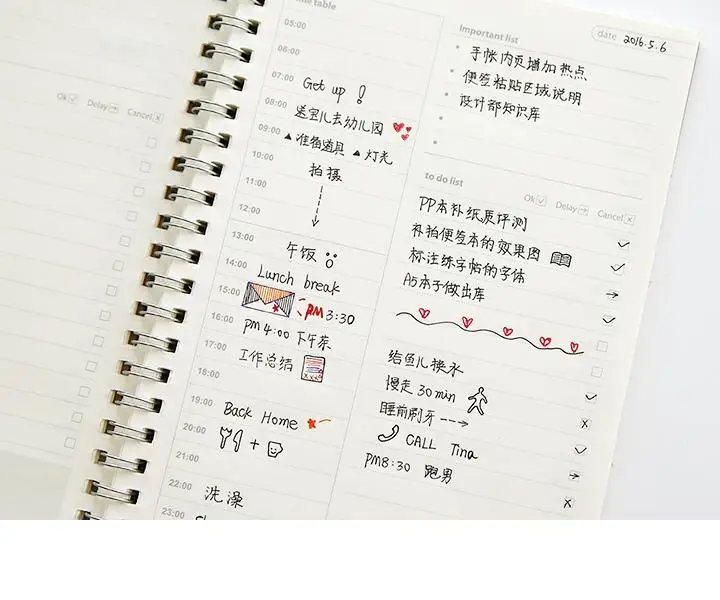 Ok Delay Cancel
me table
05:00
06:00
07:00
Get up !
08:00
送宝儿去幼儿园
09:00
▲准备道具 ▲灯光
10:00
拍摄
11:00
12:00
13:00
午饭
14:00
Lunch break
15:00
PM 3:30
16:00
PM 4:00 下午茶
17:00
工作总结
18:00
19:00
Back Home
20:00
+
21:00
22:00
洗澡
23:00
date 2016.5.6
Important list
手帐内页增加热点
便签粘贴区域说明
设计部知识库
to do list
Ok Delay Cancel
PP本补纸质评测
补拍便签本的效果图
标注练字帖的字体
A5本子做出库
给鱼儿换水
慢走30min
睡前刷牙
CALL Tina
PM8:30 跑男